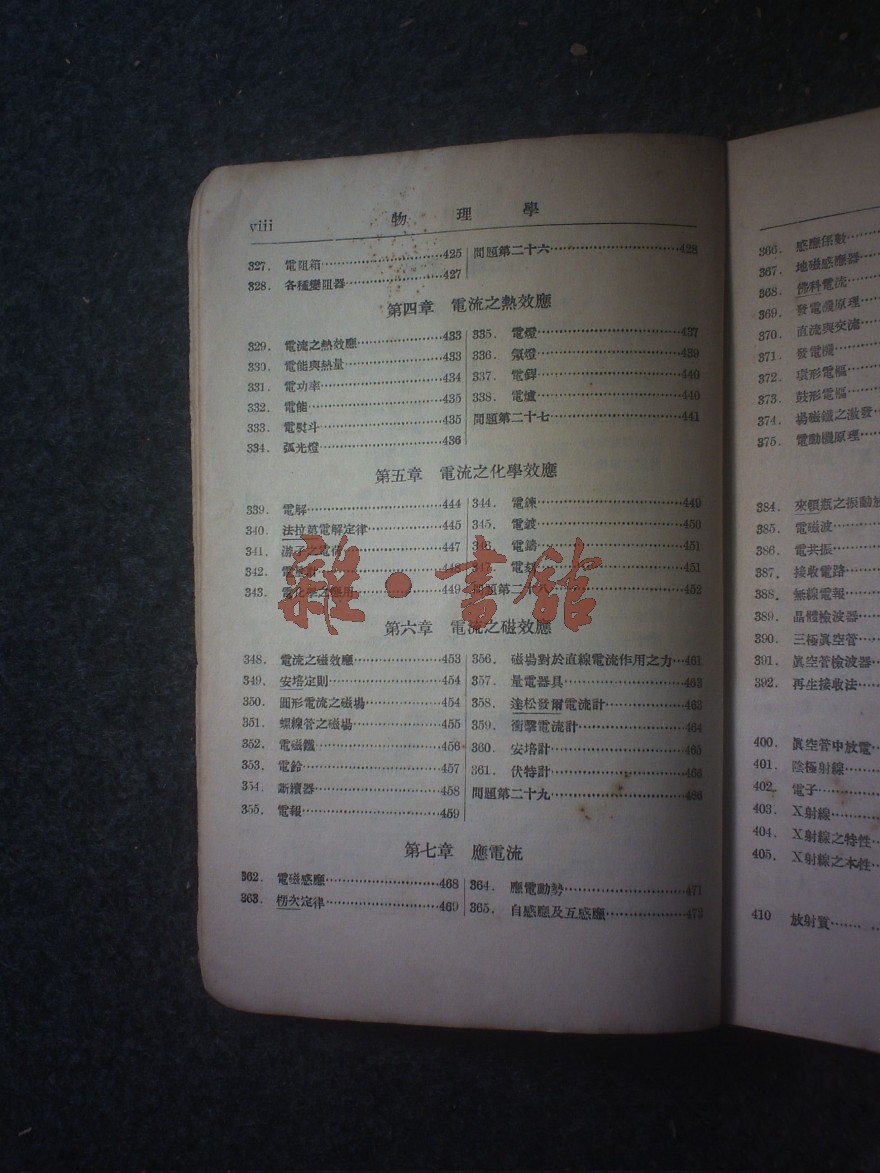 viii 物理學
327. 電阻箱 425
328. 各種變阻器 427
問題第二十六 428
第四章 電流之熱效應
329. 電流之熱效應 433
330. 電能與熱量 433
331. 電功率 434
332. 電能 435
333. 電熨斗 435
334. 弧光燈 436
335. 電燈 437
336. 氖燈 439
337. 電銲 440
338. 電爐 440
問題第二十七 441
第五章 電流之化學效應
339. 電解 444
340. 法拉第電解定律 445
341. 游子之電荷 447
342. 448
343. 電化學之應用 449
344. 電鍊 449
345. 電鍍 450
346. 電鑄 451
347. 電刻 451
問題第二十八 452
第六章 電流之磁效應
348. 電流之磁效應 453
349. 安培定則 454
350. 圓形電流之磁場 454
351. 螺線管之磁場 455
352. 電磁鐵 456
353. 電鈴 457
354. 斷續器 458
355. 電報 459
356. 磁場對於直線電流作用之力 461
357. 量電器具 463
358. 達松發爾電流計 463
359. 衝擊電流計 464
360. 安培計 465
361. 伏特計 466
問題第二十九 466
第七章 應電流
362. 電磁感應 468
363. 楞次定律 469
364. 應電動勢 471
365. 自感應及互感應 473
雜·書館
366. 感應係數
367. 地磁感應器
368. 佛科電流
369. 發電機原理
370. 直流與交流
371. 發電機
372. 環形電樞
373. 鼓形電樞
374. 場磁鐵之激發
375. 電動機原理
384. 來頓瓶之振動放
385. 電磁波
386. 電共振
387. 接收電路
388. 無線電報
389. 晶體檢波器
390. 三極眞空管
391. 眞空管檢波器
392. 再生接收法
400. 眞空管中放電
401. 陰極射線
402. 電子
403. X射線
404. X射線之特性
405. X射線之本性
410 放射質